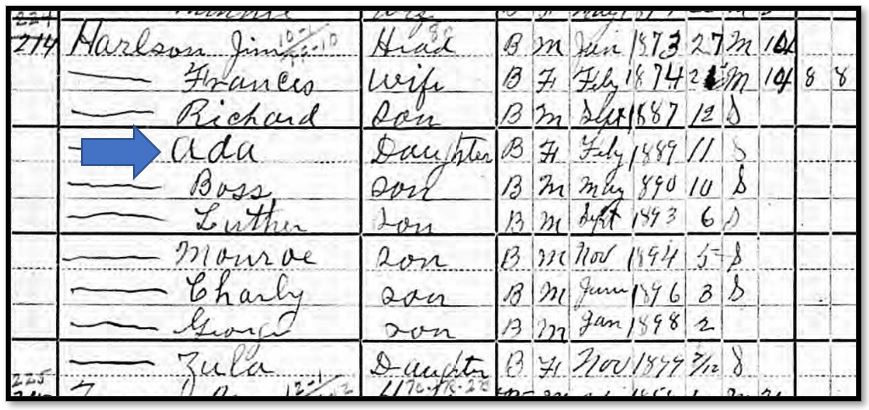 224
214 Harlson Jim Head B M Jan 1873 27 M 10
Frances Wife B F Feby 1874 M 10 8 8
Richard Son B M Sept 1887 12 S
Ada Daughter B F Feby 1889 11 S
Boss Son B M May 1890 10 S
Luther Son B M Sept 1893 6 S
Monroe Son B M Nov 1894 5 S
Charly Son B M June 1896 3 S
George Son B M Jan 1898 2
Zula Daughter B F Nov 1899 /12 S
225